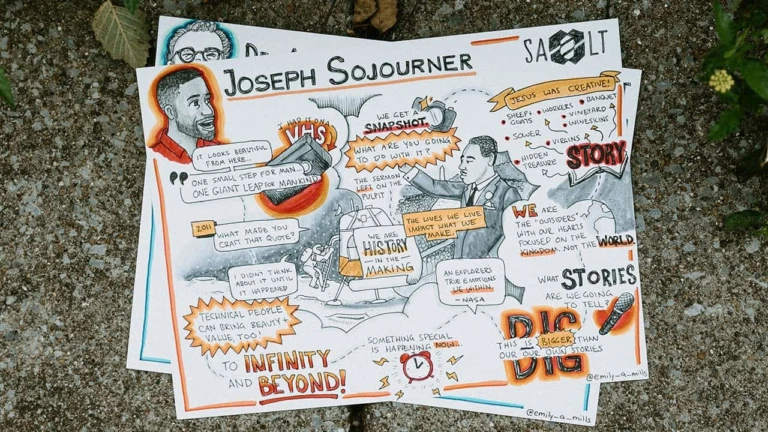 JOSEPH SOJOURNER
SALT
IT LOOKS BEAUTIFUL
FROM HERE...
" ONE SMALL STEP FOR MAN...
ONE GIANT LEAP FOR MANKIND
VHS
WE GET A
SNAPSHOT.
WHAT ARE YOU GOING
TO DO WITH IT?
THE SERMON
LEFT ON THE
PULPIT
JESUS WAS CREATIVE!
SHEEP +
GOATS
WORKERS
BANQUET
VINEYARD
WINESKINS
SOWER
VIRGINS
HIDDEN
TREASURE
STORY
2011
WHAT MADE YOU
CRAFT THAT QUOTE?
I DIDN'T THINK
ABOUT IT UNTIL
IT HAPPENED
WE ARE
HISTORY
IN THE
MAKING
THE LIVES WE LIVE
IMPACT WHAT WE
MAKE.
AN EXPLORERS
TRUE EMOTIONS
LIE WITHIN
- NASA
WE ARE
THE "OUTSIDERS"
WITH OUR HEARTS
FOCUSED ON THE
KINGDOM. NOT THE WORLD.
WHAT STORIES
ARE WE GOING
TO TELL?
TECHNICAL PEOPLE
CAN BRING BEAUTY +
VALUE, TOO!
TO INFINITY
AND BEYOND!
SOMETHING SPECIAL
IS HAPPENING NOW.
DIG
THIS IS BIGGER THAN
OUR OUR OWN STORIES
DIG
@emily_a_mills
@emily_a_mills